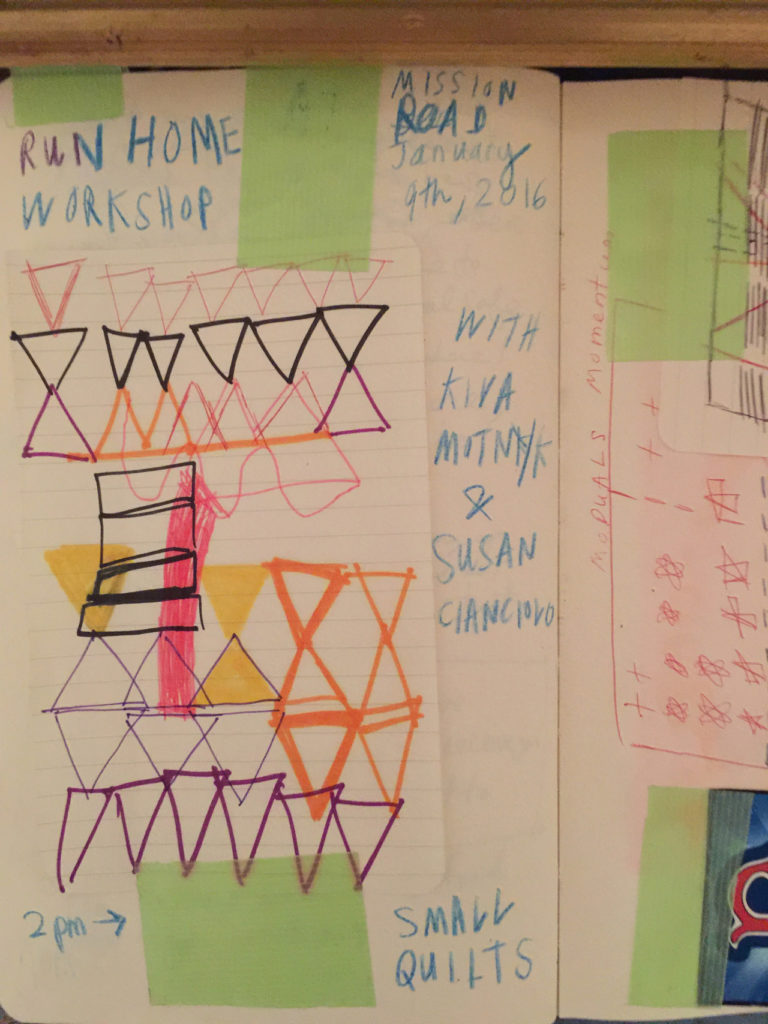 RUN HOME
WORKSHOP
MISSION
ROAD
January
9th, 2016
WITH
KIVA
MOTNYK
&
SUSAN
CIANCIOLO
2pm →
SMALL
QUILTS
MODUALS Momentum